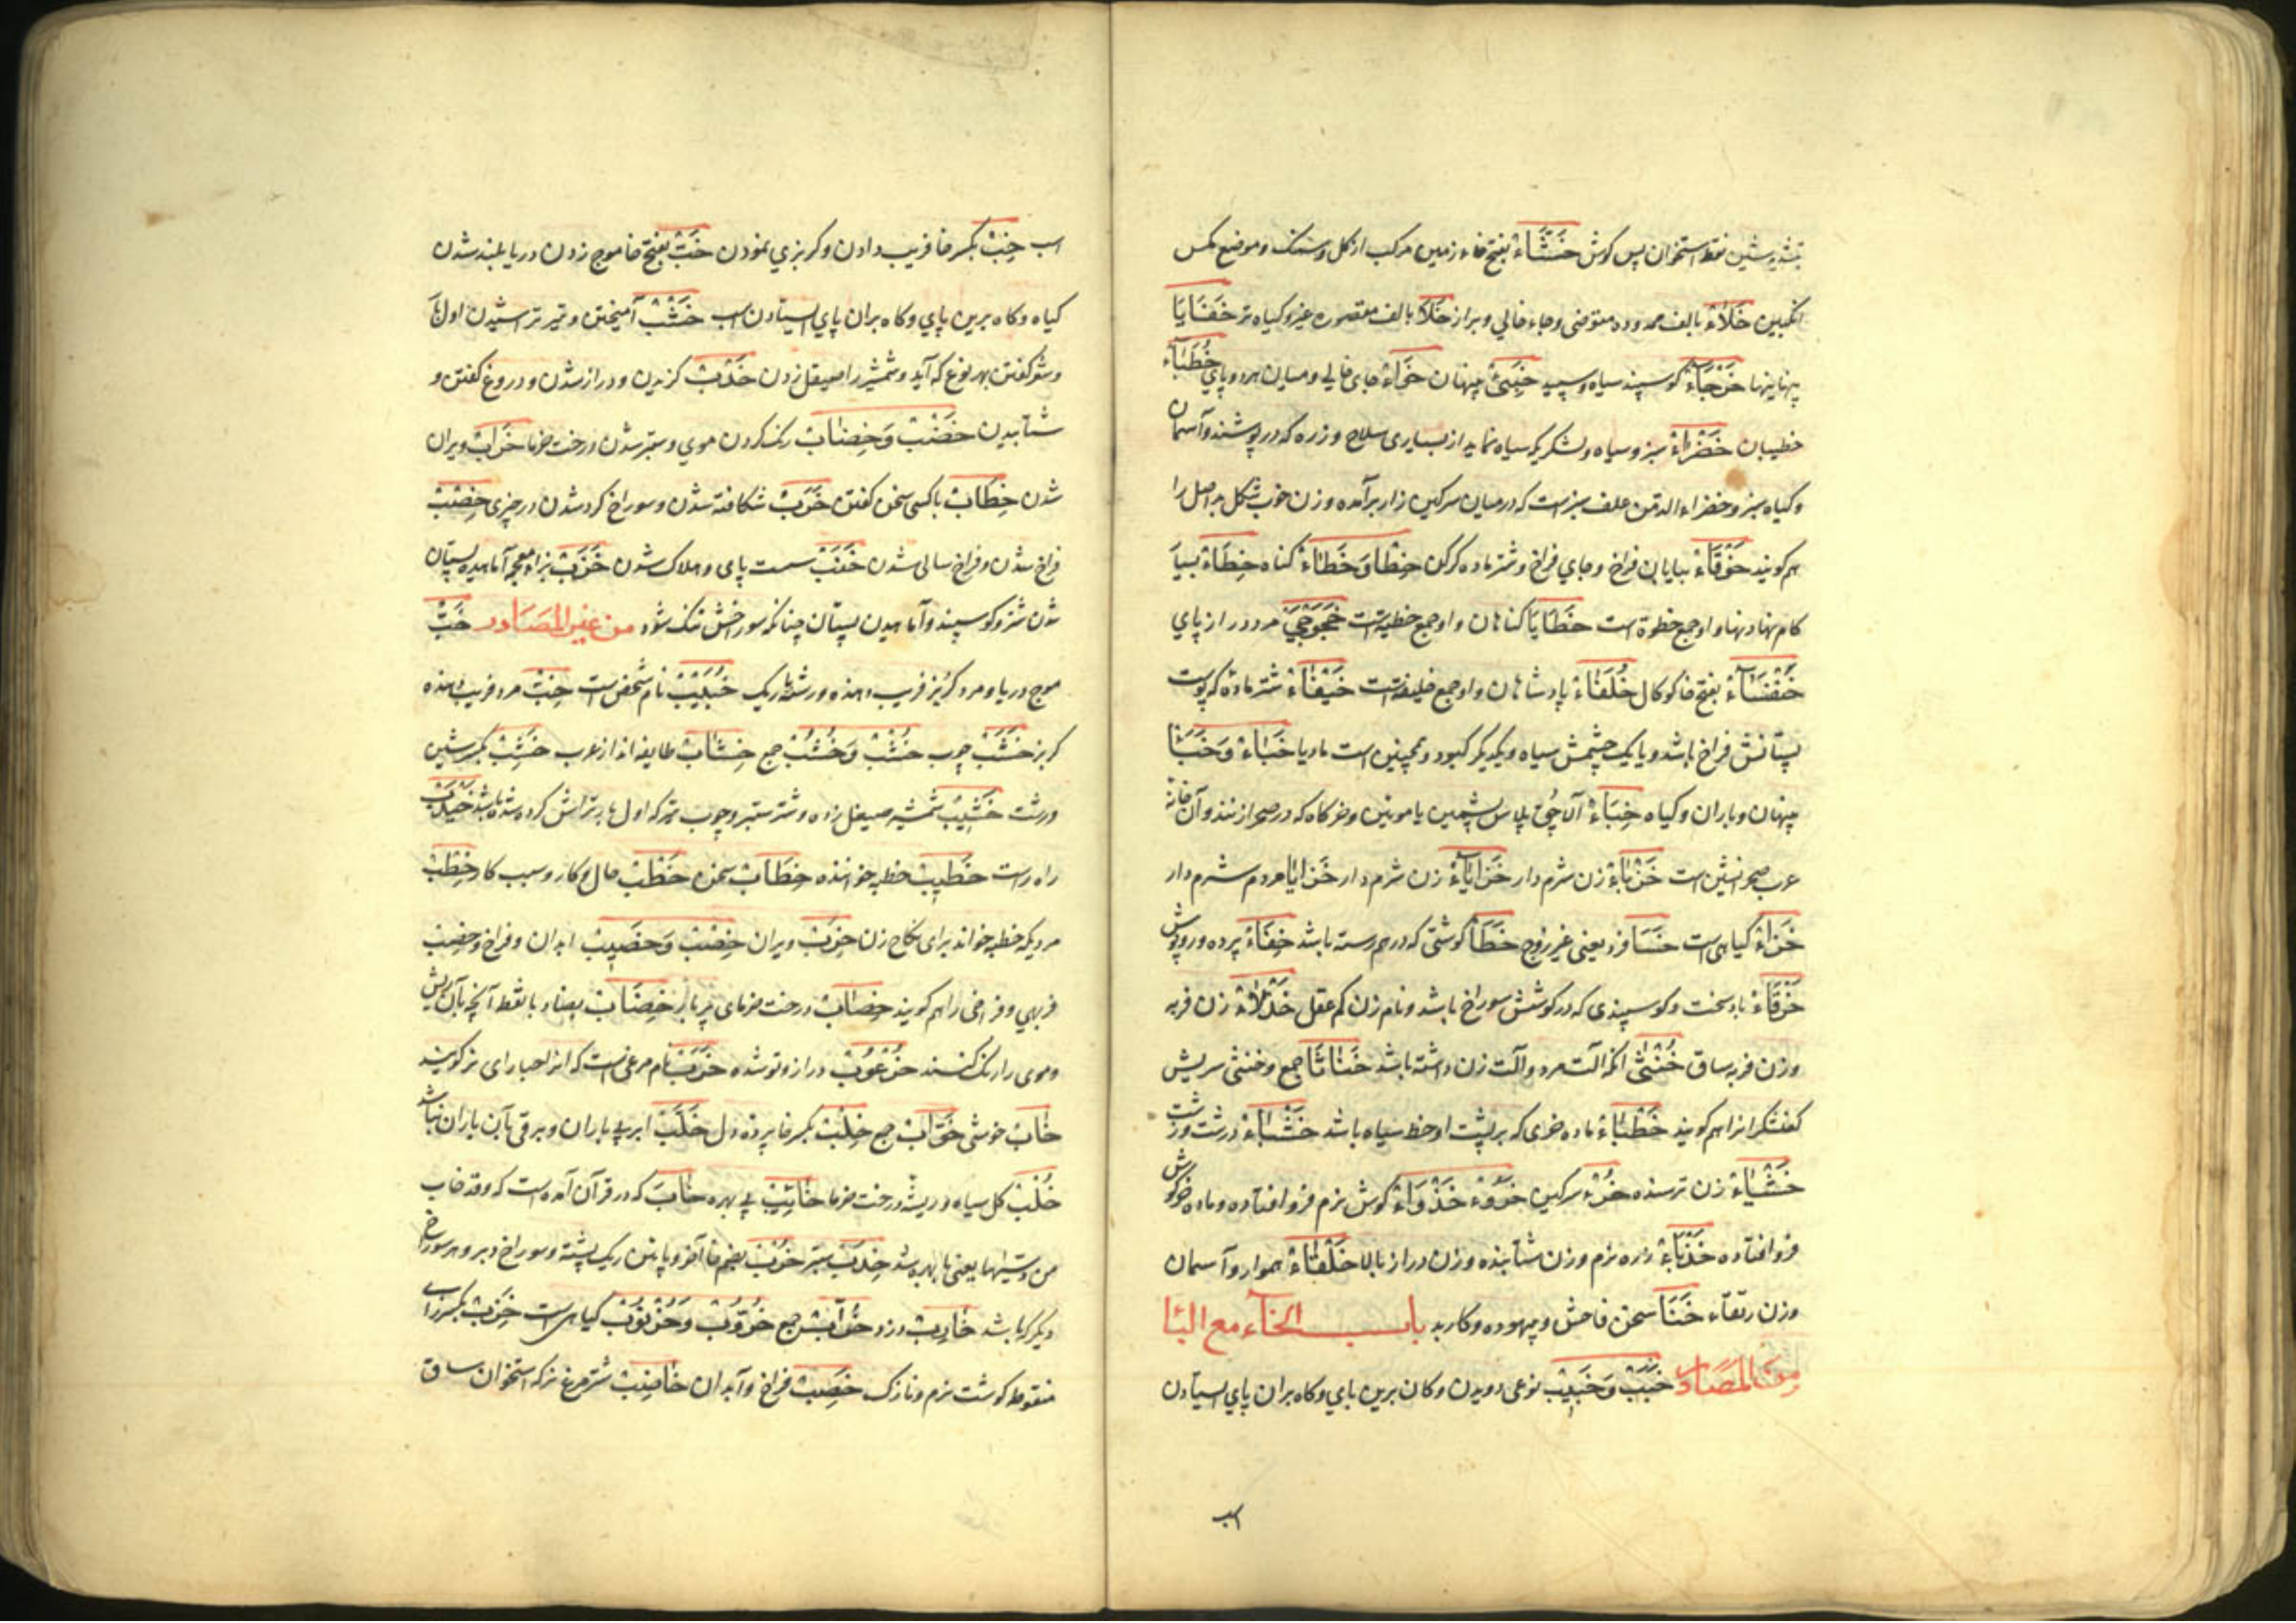 بتشدید شین فقط استخوان پس کوش خَشَّاءْ بفتح خاء زمین مرکب از کل و سنک و موضع مکس
انکبین خَلَاءْ بالف ممدوده متوضی و جاء خالی و براز خَلَا بالف مقصوره غیر و کیاه تر خَفَایَا
پنهاینها خَرْجَاءْ کوسپند سیاه و سپید خَبِئْ پنهان خَوَاءْ جای خالی و میان هر دو پای خُطَبَآء
خطیبان خَضْرَاءْ سبز و سیاه و لشکریکه سیاه نماید از بسیاری سلاح و زره که در پوشند و آسمان
و کیاه سبز و خضراء الدمن علف سبزست که در میان سرکین زار برآمده و زن خوب شکل بد اصل را
هم کویند خَرْقَاءْ بیابان فراخ و جای فراخ و شتر ماده کرکن خِطْا وَخَطَاءْ کناه خِطَاءْ بسیا
کام نهادنها و او جمع خطوة است خَطَایَا کناهان و او جمع خطیئتست خَجَوْجَیْ مرد دراز پای
خُنْفَسَآءْ بفتح فا کوکال خُلَفَاءْ پادشاهان و او جمع خلیفتست خَیْفَاءْ شتر ماده که پوست
پستانش فراخ باشد و یا یک چشمش سیاه و یکدیکر کبود و همچنین است مادیا خَبَاءْ وَخَبَا
پنهان و باران و کیاه خِبَاءْ آلاچق پلاس پشمین یا موئین و خرکاه که در صحرا زنند و آن خانه
عرب صحرا نشین است خَزْیَاءْ زن شرم دار خَزَایَاءْ زن شرم دار خَزَایَا مردم شرم دار
خَزَاءْ کیاهی است خَسَا فرد یعنی غیر زوج خَطَا کوشتی که در هم رسته باشد خِفَاءْ پرده و روپوش
خَرْقَاءْ باد سخت و کوسپندی که در کوشش سوراخ باشد و نام زن کم عقل خَدْلَاءْ زن فربه
و زن فربه ساق خُنْثَیْ انکه آلت مرد و آلت زن داشته باشد خَنَاثَا جمع و خنثی سریش
کفشکرانرا هم کویند خَطْبَاءْ ماده خری که بر پشت او خط سیاه باشد خَشْنَاءْ درشت و زشت
خَشْیَاءْ زن ترسنده خُرْءْ سرکین خُرُوْءْ خَذْوَاءْ کوش نرم فرو افتاده و ماده خر کوش
فرو افتاده خَدْبَاءْ زره نرم و زن شتابنده و زن دراز بالا خَلْقَاءْ هموار و آسمان
و زن رتقاء خَنَا سخن فاحش و بیهوده و کار بد باب الخآء مع البا
مِنَ المَصَادر خَبَبْ وَخَبِیْب نوعی دویدن و کان برین بای و کاه بران پای ایستادن
اسب
اسب خِبْ بکسر خا فریب دادن و کربزی نمودن خَبْ بفتح خا موج زدن دریا بلند شدن
کیاه و کاه برین پای و کاه بران پای ایستادن اسب خَشْبْ آمیختن و تیر تراشیدن اول بار
و شعر کفتن بهر نوع که آید و شمشیر را صیقل زدن خَدْبْ کزیدن و دراز شدن و دروغ کفتن و
شتابیدن خَضْبْ وَخِضَابْ رنک کردن موی و سبز شدن درخت خرما خَرَابْ ویران
شدن خِطَابْ با کسی سخن کفتن خَرَبْ شکافته شدن و سوراخ کرد شدن در چیزی خِصْبْ
فراخ شدن و فراخ سالی شدن سست پای و هلاک شدن خَزَبْ بزاء معجمه آماهیده پستان
شدن شتر و کوسپند و آماهیدن پستان چنانکه سوراخش تنک شود من غیر المَصَادر خَبْ
موج دریا و مرد کربز فریب دهنده و رشته باریک خُبَیْبْ نام شخص است خِبْ مرد فریب دهنده
کربز خَشَبْ چوب خُشْبْ وَخُشُبْ جمع خِشَابْ طایفه اند از عرب خَشِبْ بکسر شین
درشت خَشِیْبْ شمشیر صیقل زده و شتر ستبر و چوب تیر که اول بار تراش کرده شده باشد خَیْدَبْ
راه راست خَطِیْبْ خطبه خواننده خِطَابْ سخن خَطْبْ حال و کار و سبب کار خِطْبْ
مردیکه خطبه خواند برای نکاح زن خَرِبْ ویران خِصْبْ وَخَصِیبْ ابدان و فراخ و خصب
فربهی و فراخی را هم کویند خِصَابْ درخت خرمای پر بار خِضَابْ بضاد با نقطه آنچه بآن ریش
و موی را رنک کنند خُرْعُوْبْ دراز و نو شده خَرَبْ نام مرغی است که انرا حبارای نر کویند
خَابْ خوشی جمع خِلْبْ بکسر خا پرده دل خُلَّبْ ابر بی باران و برقی بآن باران نباشد
خُلْبْ کل سیاه و ریشه درخت خرما خَائِبْ بی بهره خَابَ که در قرآن آمده است که وقد خاب
من دسیٰها یعنی نا بهره شد خِدَبْ ستبر خُرْبْ بضم خا آخر و پایین ریک پشته و سوراخ دبر و هر سوراخ
دیکر که باشد خَارِبْ دزد جمع خُرُّوْبْ وَخُرْنُوْبْ کیاهی است خَزِبْ بکسر زاء
منقوطه کوشت نرم و نازک خَصِبْ فراخ و آبدان خَاضِبْ شتر مرغ نر که استخوان ساق